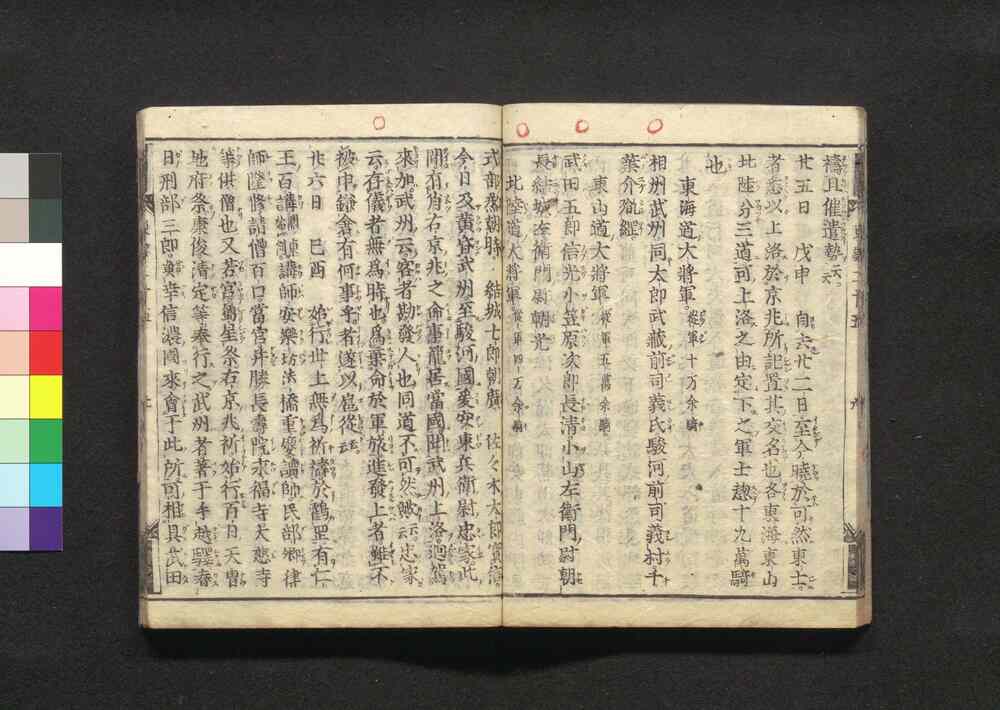 禱且催遣勢云々
廿五日 戊申 自去廿二日至今曉於可然東士
者悉以上洛於京兆所記置其交名也各東海東山
北陸分三道可上洛之由定下之軍士惣十九萬騎
也
東海道大將軍 從軍十万余騎
相州武州同太郎武藏前司義氏駿河前司義村千
葉介胤綱
東山道大將軍 從軍五萬余騎
武田五郎信光小笠原次郎長清小山左衛門尉朝
長結城左衛門尉朝光
北陸道大將軍 從軍四万余騎
式部丞朝時 結城七郎朝廣 佐々木太郎實信
今日及黄昏武州至駿河國爰安東兵衛尉忠家此
間有背右京兆之命事籠居當國聞武州上洛廻駕
來加武州云客者勘發人也同道不可然歟云忠家
云存儀者無爲時也爲棄命於軍旅進發上者雖不
被申鎌倉有何事乎者遂以扈從云云
廿六日 己酉 始行世上無爲祈禱於鶴罡有仁
王百講 講師安樂坊法橋重慶讀師民部卿律
師隆修請僧百口當宮并勝長壽院永福寺大慈寺
等供僧也又若宮 属星祭右京兆祈始行百日天曹
地府祭康俊清定等奉行之武州者著于手越驛春
日刑部三郎貞幸信濃國來會于此所可相具武田